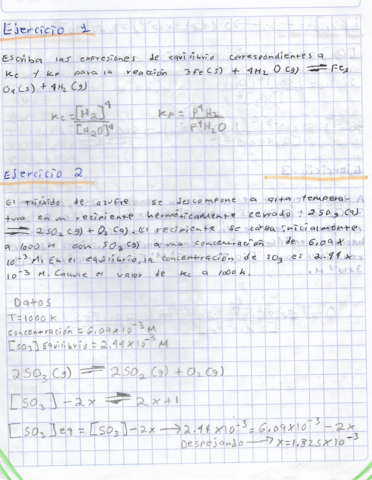 Ejercicio 1
Escriba las expresiones de equilibrio correspondientes a
Kc y Kp para la reacción 3Fe(s) + 4H2O(g) ⇌ Fe3
O4(s) + 4H2(g)
Kc = [H2]^4 / [H2O]^4 Kp = P^4H2 / P^4H2O
Ejercicio 2
El trióxido de azufre se descompone a alta tempera-
tura en un recipiente herméticamente cerrado: 2SO3(g)
⇌ 2SO2(g) + O2(g). El recipiente se carga inicialmente
a 1000 K con SO3(g) a una concentración de 6.09 x
10^-3 M. En el equilibrio, la concentración de SO3 es 2.44 x
10^-3 M. Calcule el valor de Kc a 1000 K.
Datos
T=1000 K
Concentración = 6.09 x 10^-3 M
[SO3] Equilibrio = 2.44 x 10^-3 M
2SO3(g) ⇌ 2SO2(g) + O2(g)
[SO3] - 2x ⇌ 2x + 1
[SO3]eq = [SO3] - 2x → 2.44 x 10^-3 = 6.09 x 10^-3 - 2x
Despejando → x = 1.825 x 10^-3